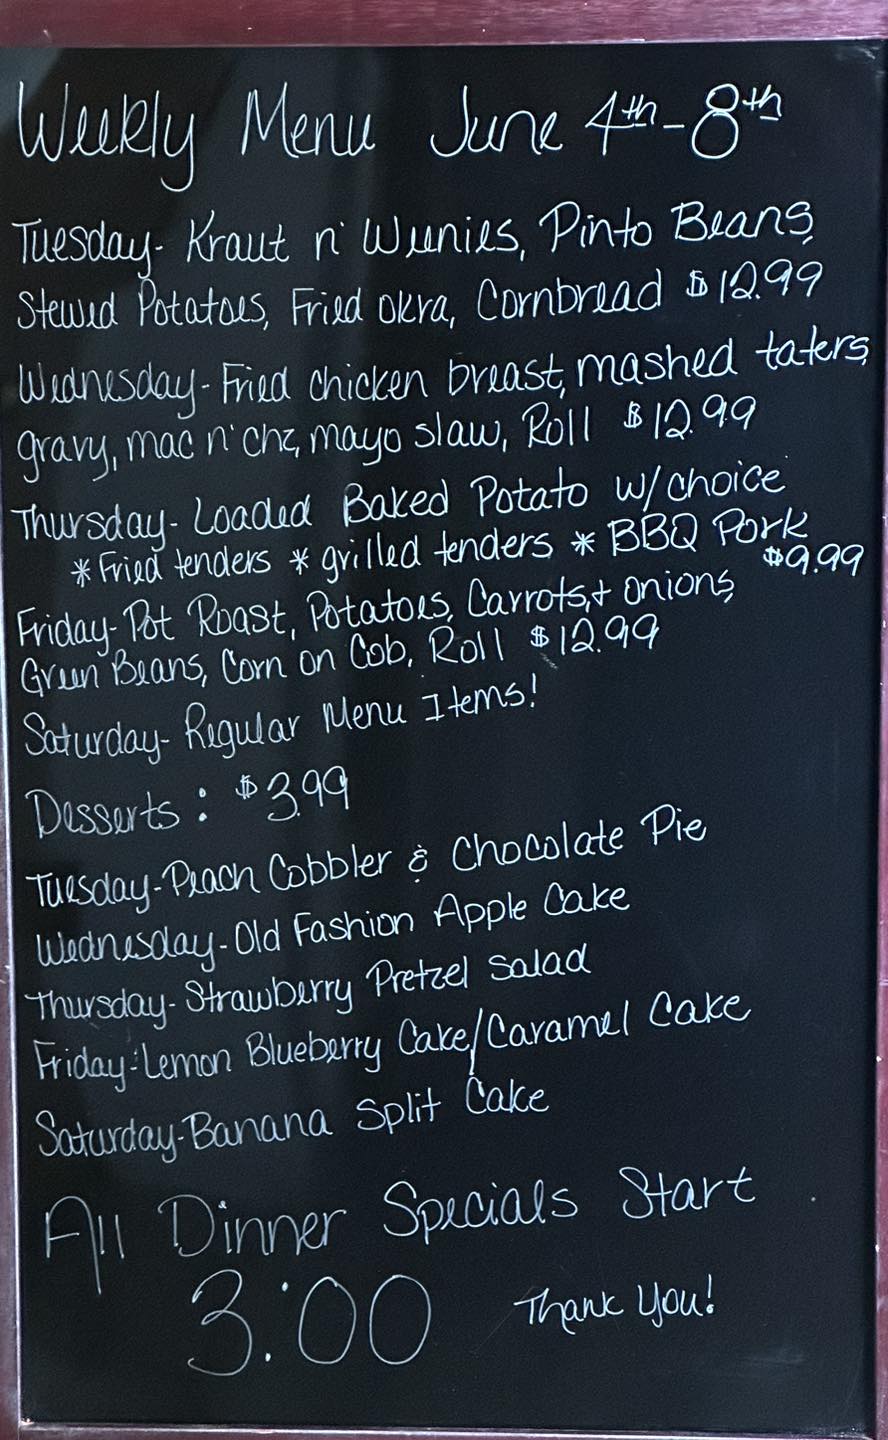 Weekly Menu June 4th-8th
Tuesday- Kraut n' Weenies, Pinto Beans,
Stewed Potatoes, Fried okra, Cornbread $12.99
Wednesday- Fried chicken breast, mashed taters,
gravy, mac n' chz, mayo slaw, Roll $12.99
Thursday- Loaded Baked Potato w/choice
*Fried tenders *grilled tenders *BBQ Pork
$9.99
Friday- Pot Roast, Potatoes, Carrots,+ onions,
Green Beans, Corn on Cob, Roll $12.99
Saturday- Regular Menu Items!
Desserts: $3.99
Tuesday-Peach Cobbler & Chocolate Pie
Wednesday-Old Fashion Apple Cake
Thursday- Strawberry Pretzel Salad
Friday-Lemon Blueberry Cake/Caramel Cake
Saturday-Banana Split Cake
All Dinner Specials Start
3:00 Thank You!